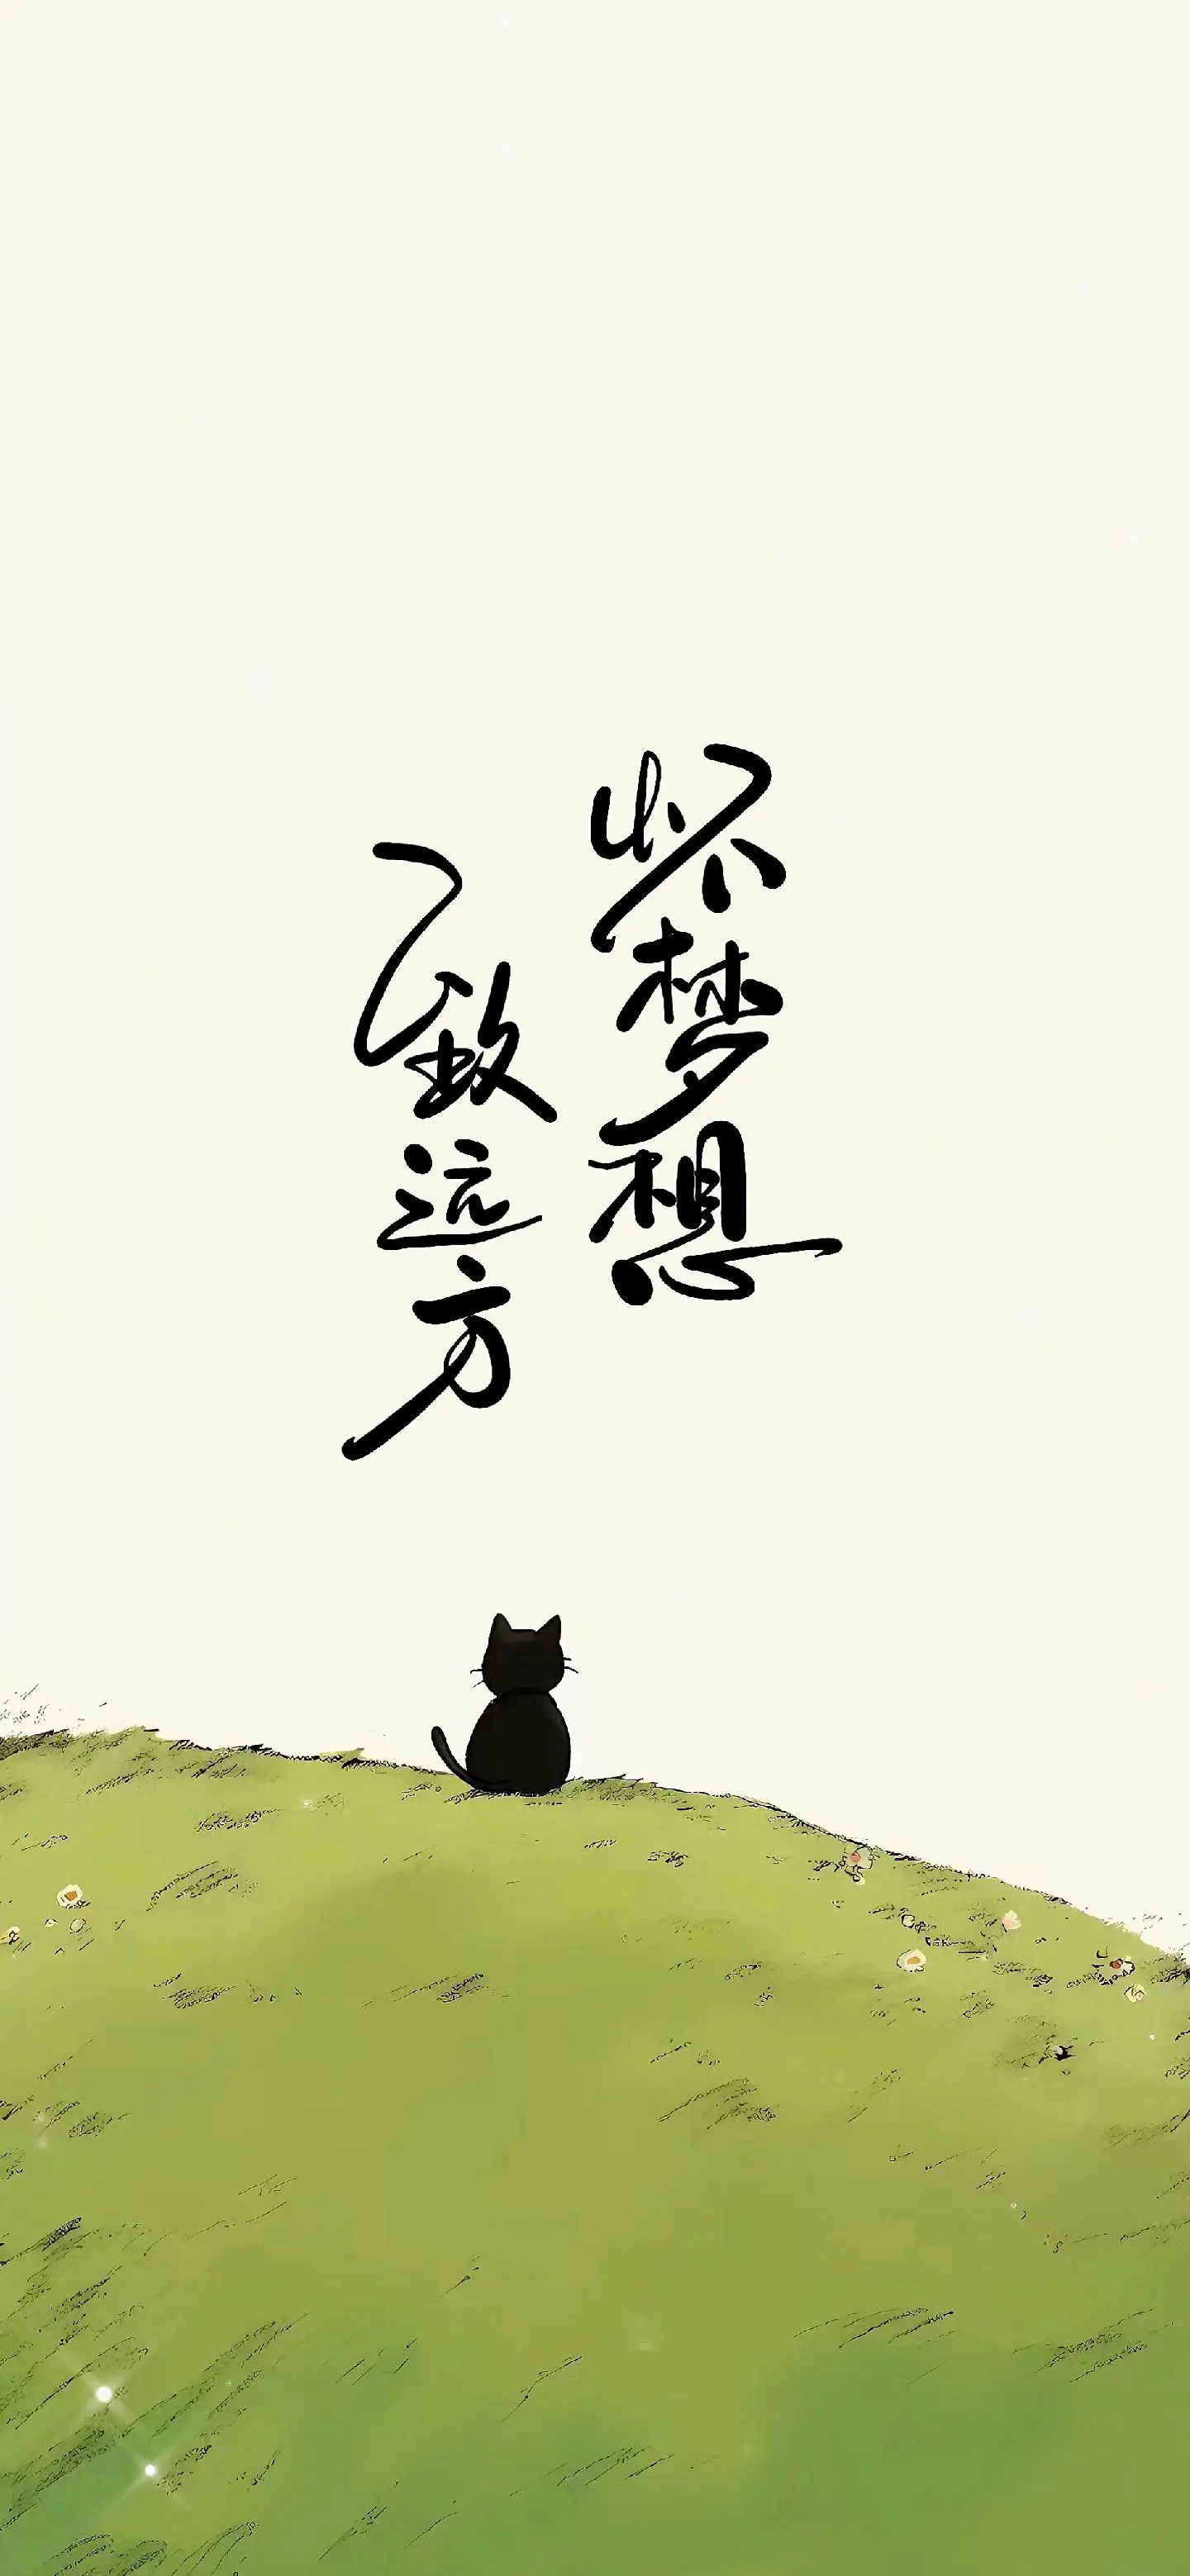 怀梦想
致远方